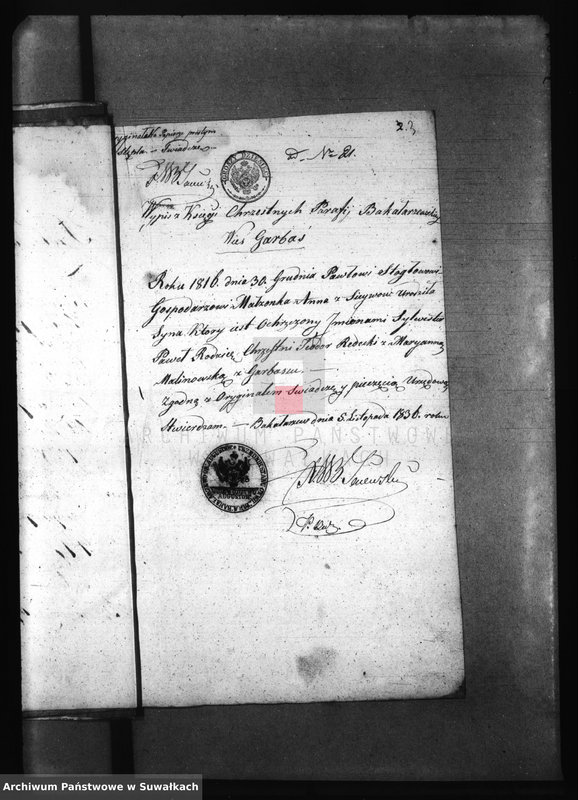 23
Świadczę
D. No 81.
Wypis z Księgi Chrzestnych Parafij Bakałarzewskiey
Wieś Garbaś
Roku 1816. dnia 30. Grudnia Pawłowi
Gospodarzowi Małżonka Anna z urodziła
Syna Który iest Ochrzczony Jmionami Sylwester
Paweł Rodzice Chrzestni Teodor Redecki z Maryanną
Malinowską z Garbasia. —
Zgodną z Oryginałem Swiadczę y pieczęcią Urzędową
Stwierdzam. — Bakałarzew dnia 5. Listopada 1836. roku
ARCHIWUM PAŃSTWOWE
W SUWAŁKACH
Archiwum Państwowe w Suwałkach